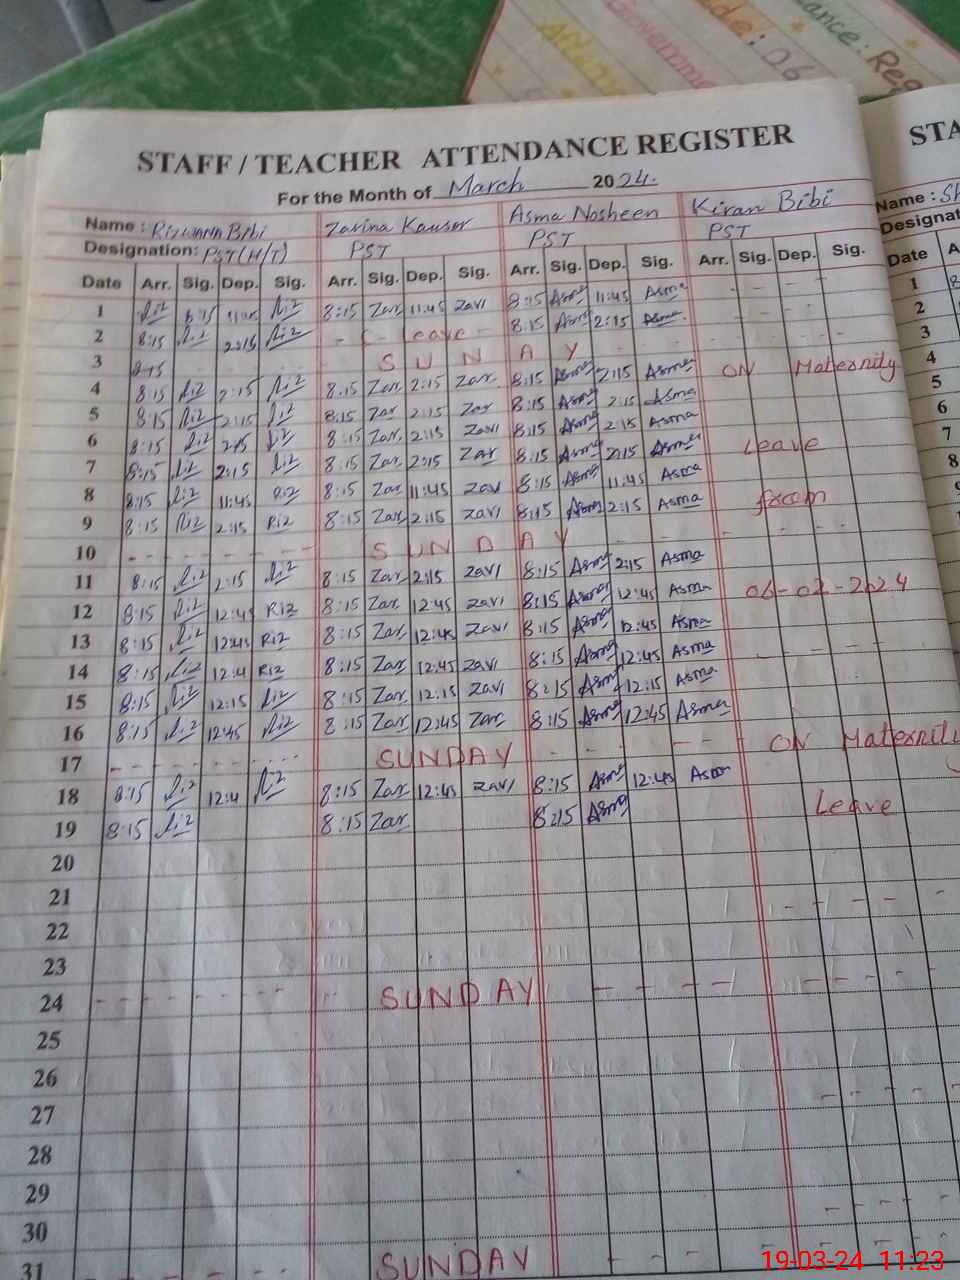 Attend
Governme
de: 06
ance: Reg
STAFF / TEACHER ATTENDANCE REGISTER
For the Month of March 2024.
Name : Rizwana Bibi Zarina Kausar Asma Nosheen Kiran Bibi
Designation: PST (H/T) PST PST PST
Date Arr. Sig. Dep. Sig. Arr. Sig. Dep. Sig. Arr. Sig. Dep. Sig. Arr. Sig. Dep. Sig.
1 Riz 8:15 11:45 Riz 8:15 Zar 11:45 Zavi 8:15 Asma 11:45 Asma
2 8:15 Riz 2:15 Riz Leave 8:15 Asma 2:15 Asma
3 8:15 S U N A Y
4 8:15 Riz 2:15 Riz 8:15 Zar 2:15 Zar 8:15 Asma 2:15 Asma ON Maternity
5 8:15 Riz 2:15 Riz 8:15 Zar 2:15 Zar 8:15 Asma 2:15 Asma
6 8:15 Riz 2:15 Riz 8:15 Zar 2:15 Zavi 8:15 Asma 2:15 Asma
7 8:15 Riz 2:15 Riz 8:15 Zar 2:15 Zar 8:15 Asma 2:15 Asma Leave
8 8:15 Riz 11:45 Riz 8:15 Zar 11:45 Zavi 8:15 Asma 11:45 Asma
9 8:15 Riz 2:15 Riz 8:15 Zar 2:15 Zavi 8:15 Asma 2:15 Asma from
10 S U N D A Y
11 8:15 Riz 2:15 Riz 8:15 Zar 2:15 Zavi 8:15 Asma 2:15 Asma
12 8:15 Riz 12:45 Riz 8:15 Zar 12:45 Zavi 8:15 Asma 12:45 Asma 06-02-2024
13 8:15 Riz 12:45 Riz 8:15 Zar 12:45 Zavi 8:15 Asma 12:45 Asma
14 8:15 Riz 12:4 Riz 8:15 Zar 12:45 Zavi 8:15 Asma 12:45 Asma
15 8:15 Riz 12:15 Riz 8:15 Zar 12:15 Zavi 8:15 Asma 12:15 Asma
16 8:15 Riz 12:45 Riz 8:15 Zar 12:45 Zar 8:15 Asma 12:45 Asma
17 SUNDAY ON Maternity
18 8:15 Riz 12:4 Riz 8:15 Zar 12:45 Zavi 8:15 Asma 12:45 Asma
19 8:15 Riz 8:15 Zar 8:15 Asma Leave
20
21
22
23
24 SUNDAY
25
26
27
28
29
30
31 SUNDAY
STA
Name : Sh
Designat
Date A
1 8
2
3
4
5
6
7
8
19-03-24 11:23